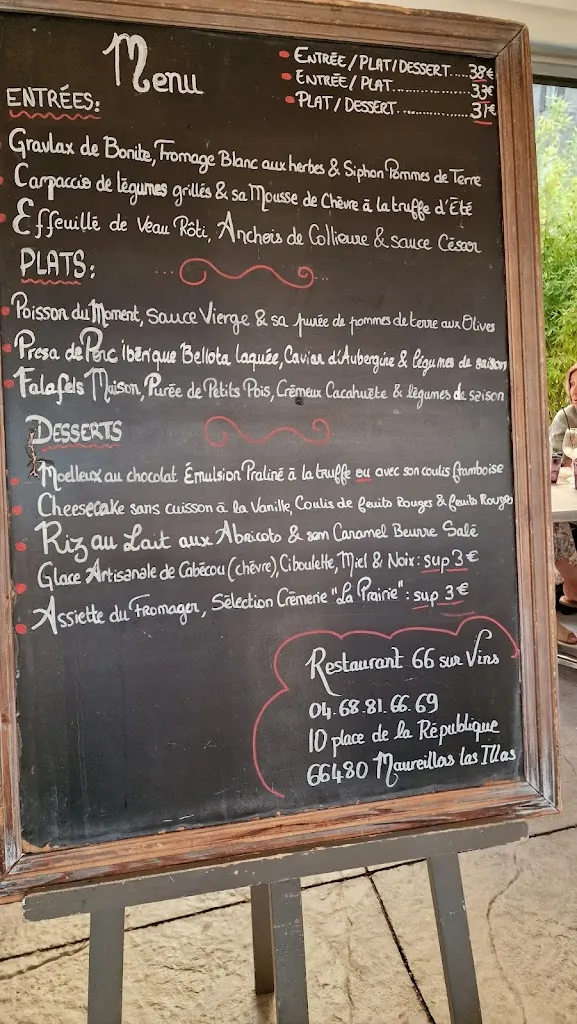 Menu
• ENTRÉE/PLAT/DESSERT....38€
• ENTRÉE/PLAT..........33€
• PLAT/DESSERT...............31€
ENTRÉES:
Gravlax de Bonite, Fromage Blanc aux herbes & Siphon Pommes de Terre
Carpaccio de légumes grillés & sa Mousse de Chèvre à la truffe d'Eté
Effeuillé de Veau Rôti, Anchois de Collioure & sauce César
PLATS:
Poisson du Moment, Sauce Vierge & sa purée de pommes de terre aux Olives
Presa de Porc ibérique Bellota laquée, Caviar d'Aubergine & légumes de saison
Falafels Maison, Purée de Petits Pois, Crémeux Cacahuète & légumes de saison
DESSERTS
Moelleux au chocolat Émulsion Praliné à la truffe ou avec son coulis framboise
Cheesecake sans cuisson à la Vanille, Coulis de fruits Rouges & fruits Rouges
Riz au Lait aux Abricots & son Caramel Beurre Salé
Glace Artisanale de Cabécou (chèvre), Ciboulette, Miel & Noix: sup 3€
Assiette du Fromager, Sélection Crèmerie "La Prairie": sup 3€
Restaurant 66 sur Vins
04.68.81.66.69
10 place de la République
66480 Maureillas las Illas